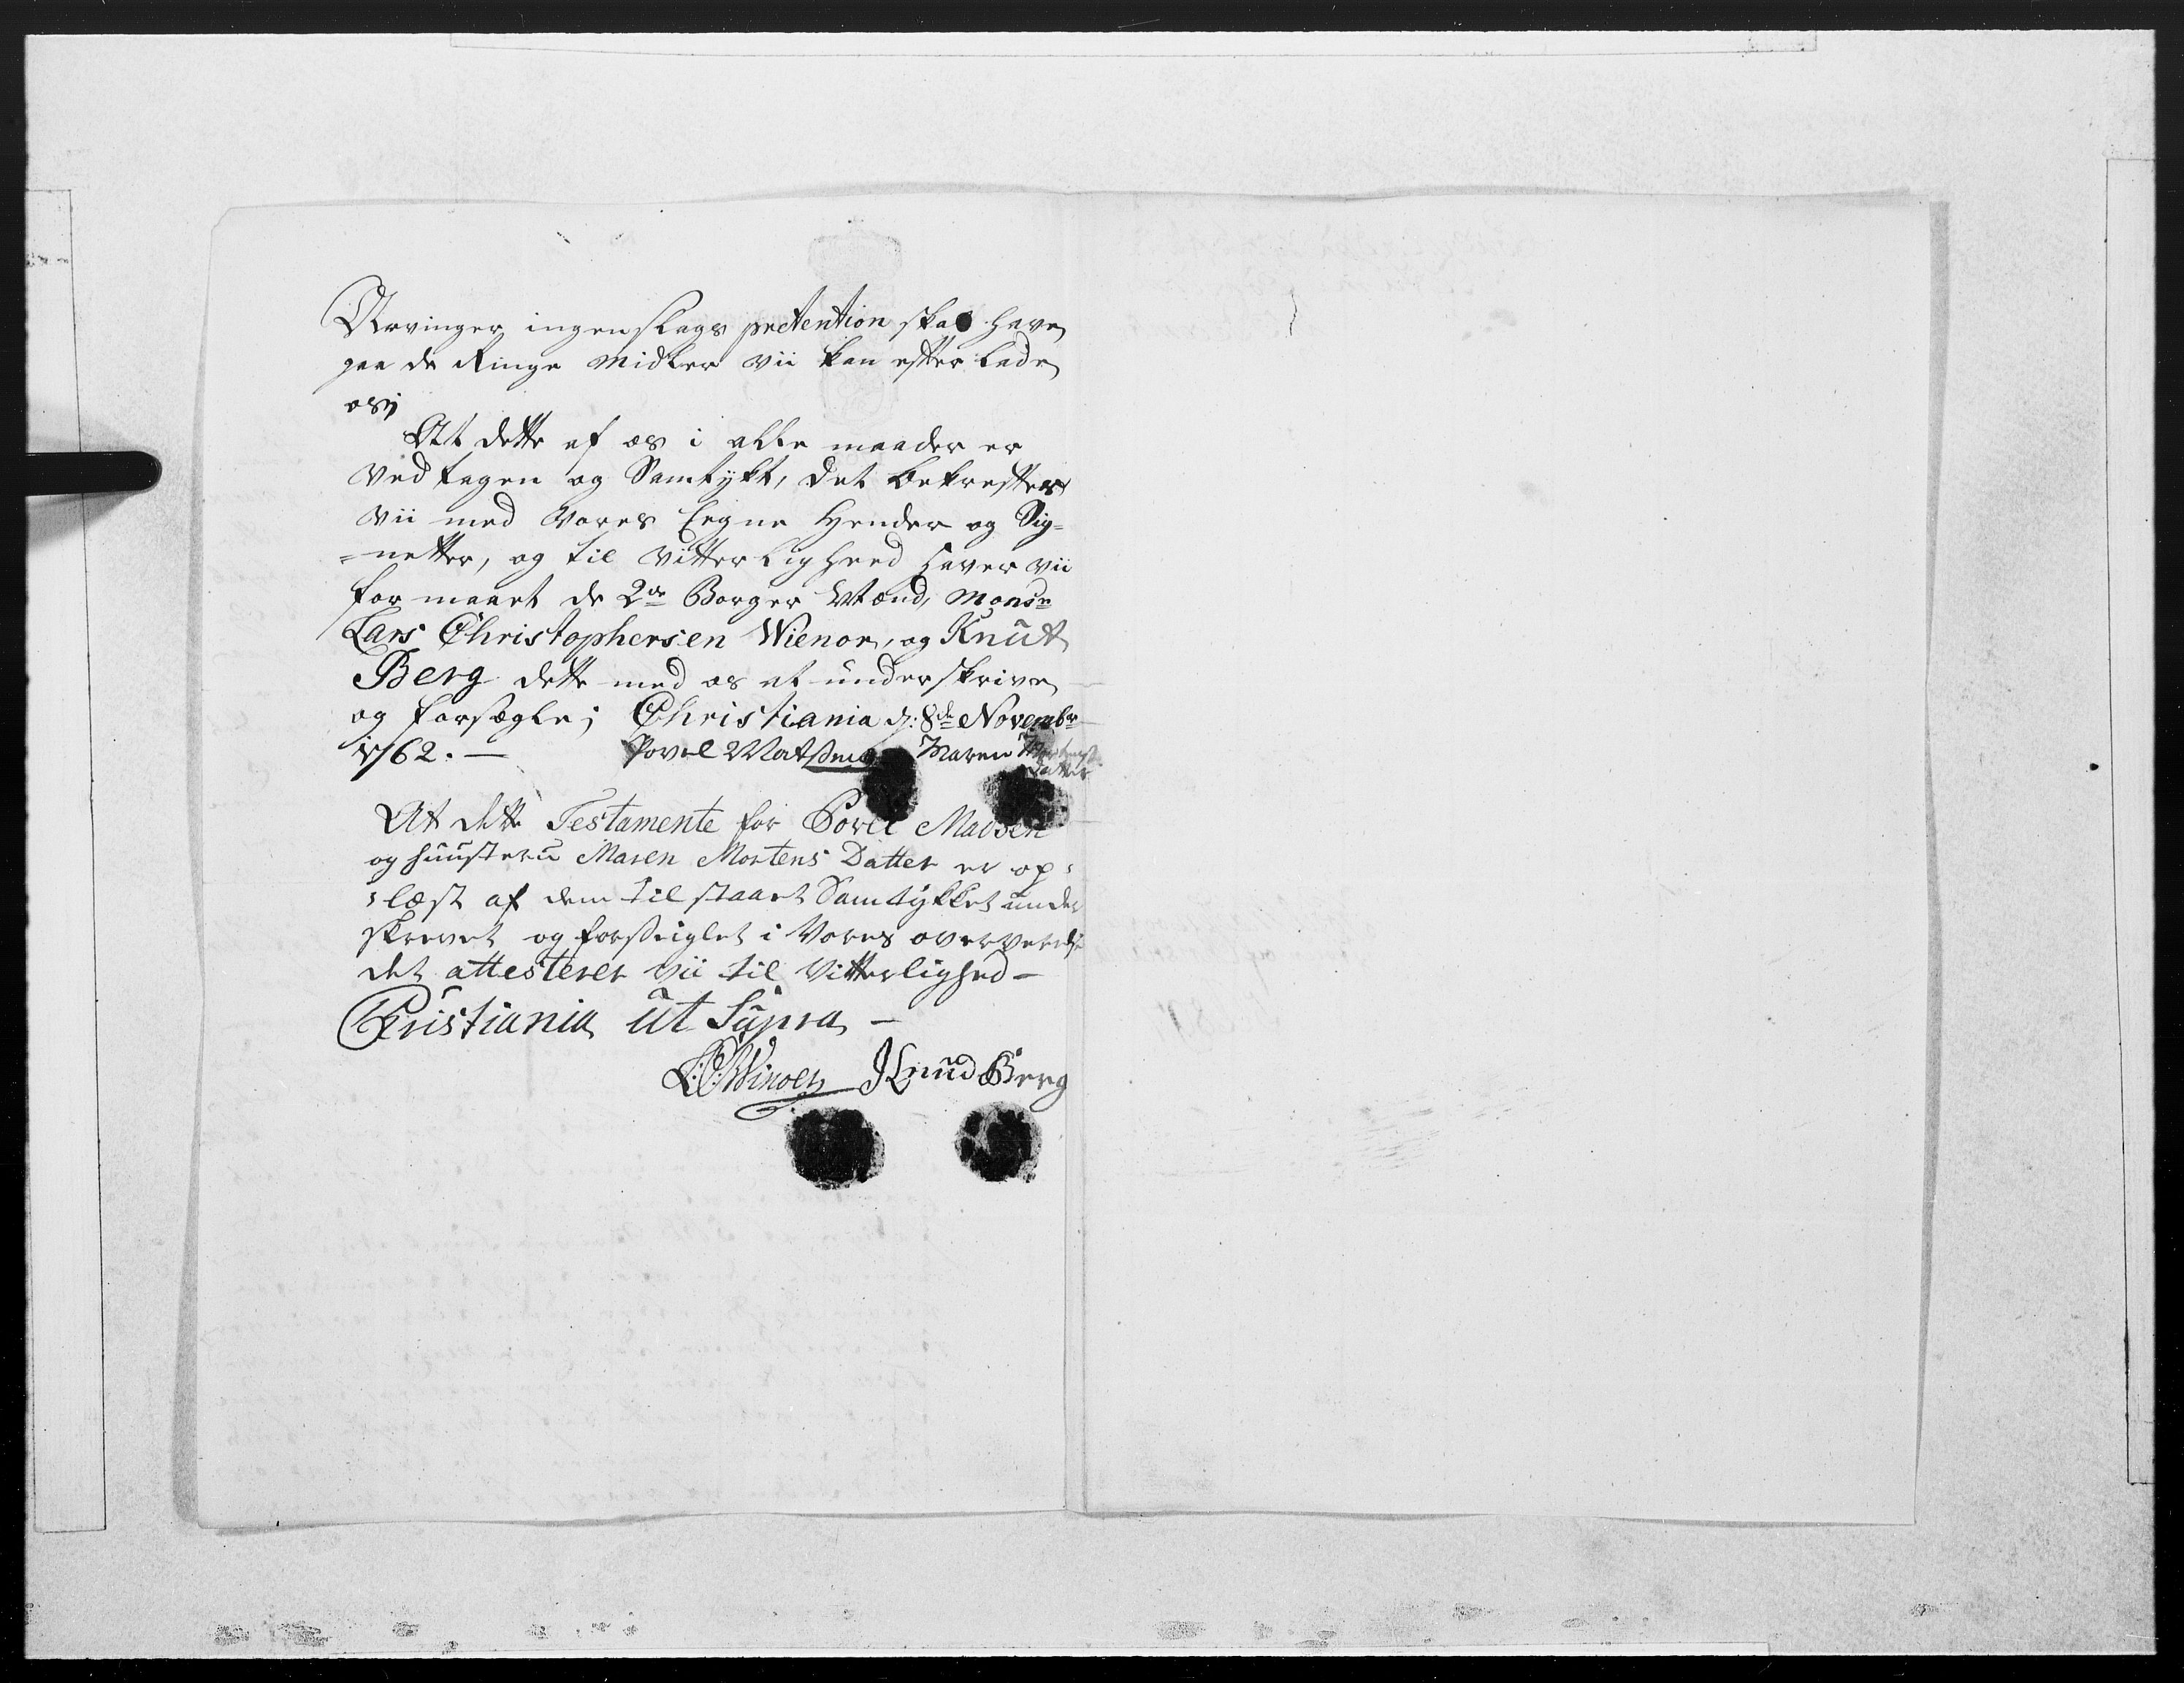 Arvinger ingenslags prætention skal have
paa de Ringe Midler vii kan efter lade
os;
At dette af os i alle maader er
Vedtagen og Samtÿkt, det bekrefter
vii med Vores Eegne Hender og Sig=
=netter, og til Vitterligheed haver vii
formaaet de 2de Borger Mænd, Monsr
Lars Christophersen Wienor, og Knut
Berg dette med os at underskrive
og forsegle; Christiania d: 8de Novembr
1762. — Povel Matsen Maren Mortens
datter
At dette Testamente for Povel Madsen
og huustru Maren Mortens Datter er op=
=læst af dem tilstaaet Samtÿkket under
skrevet og forseiglet i Vores overværelse
det attesterer vii til Vitterlighed —
Christiania ut Supra —
L:C: Winoer Knud Berg